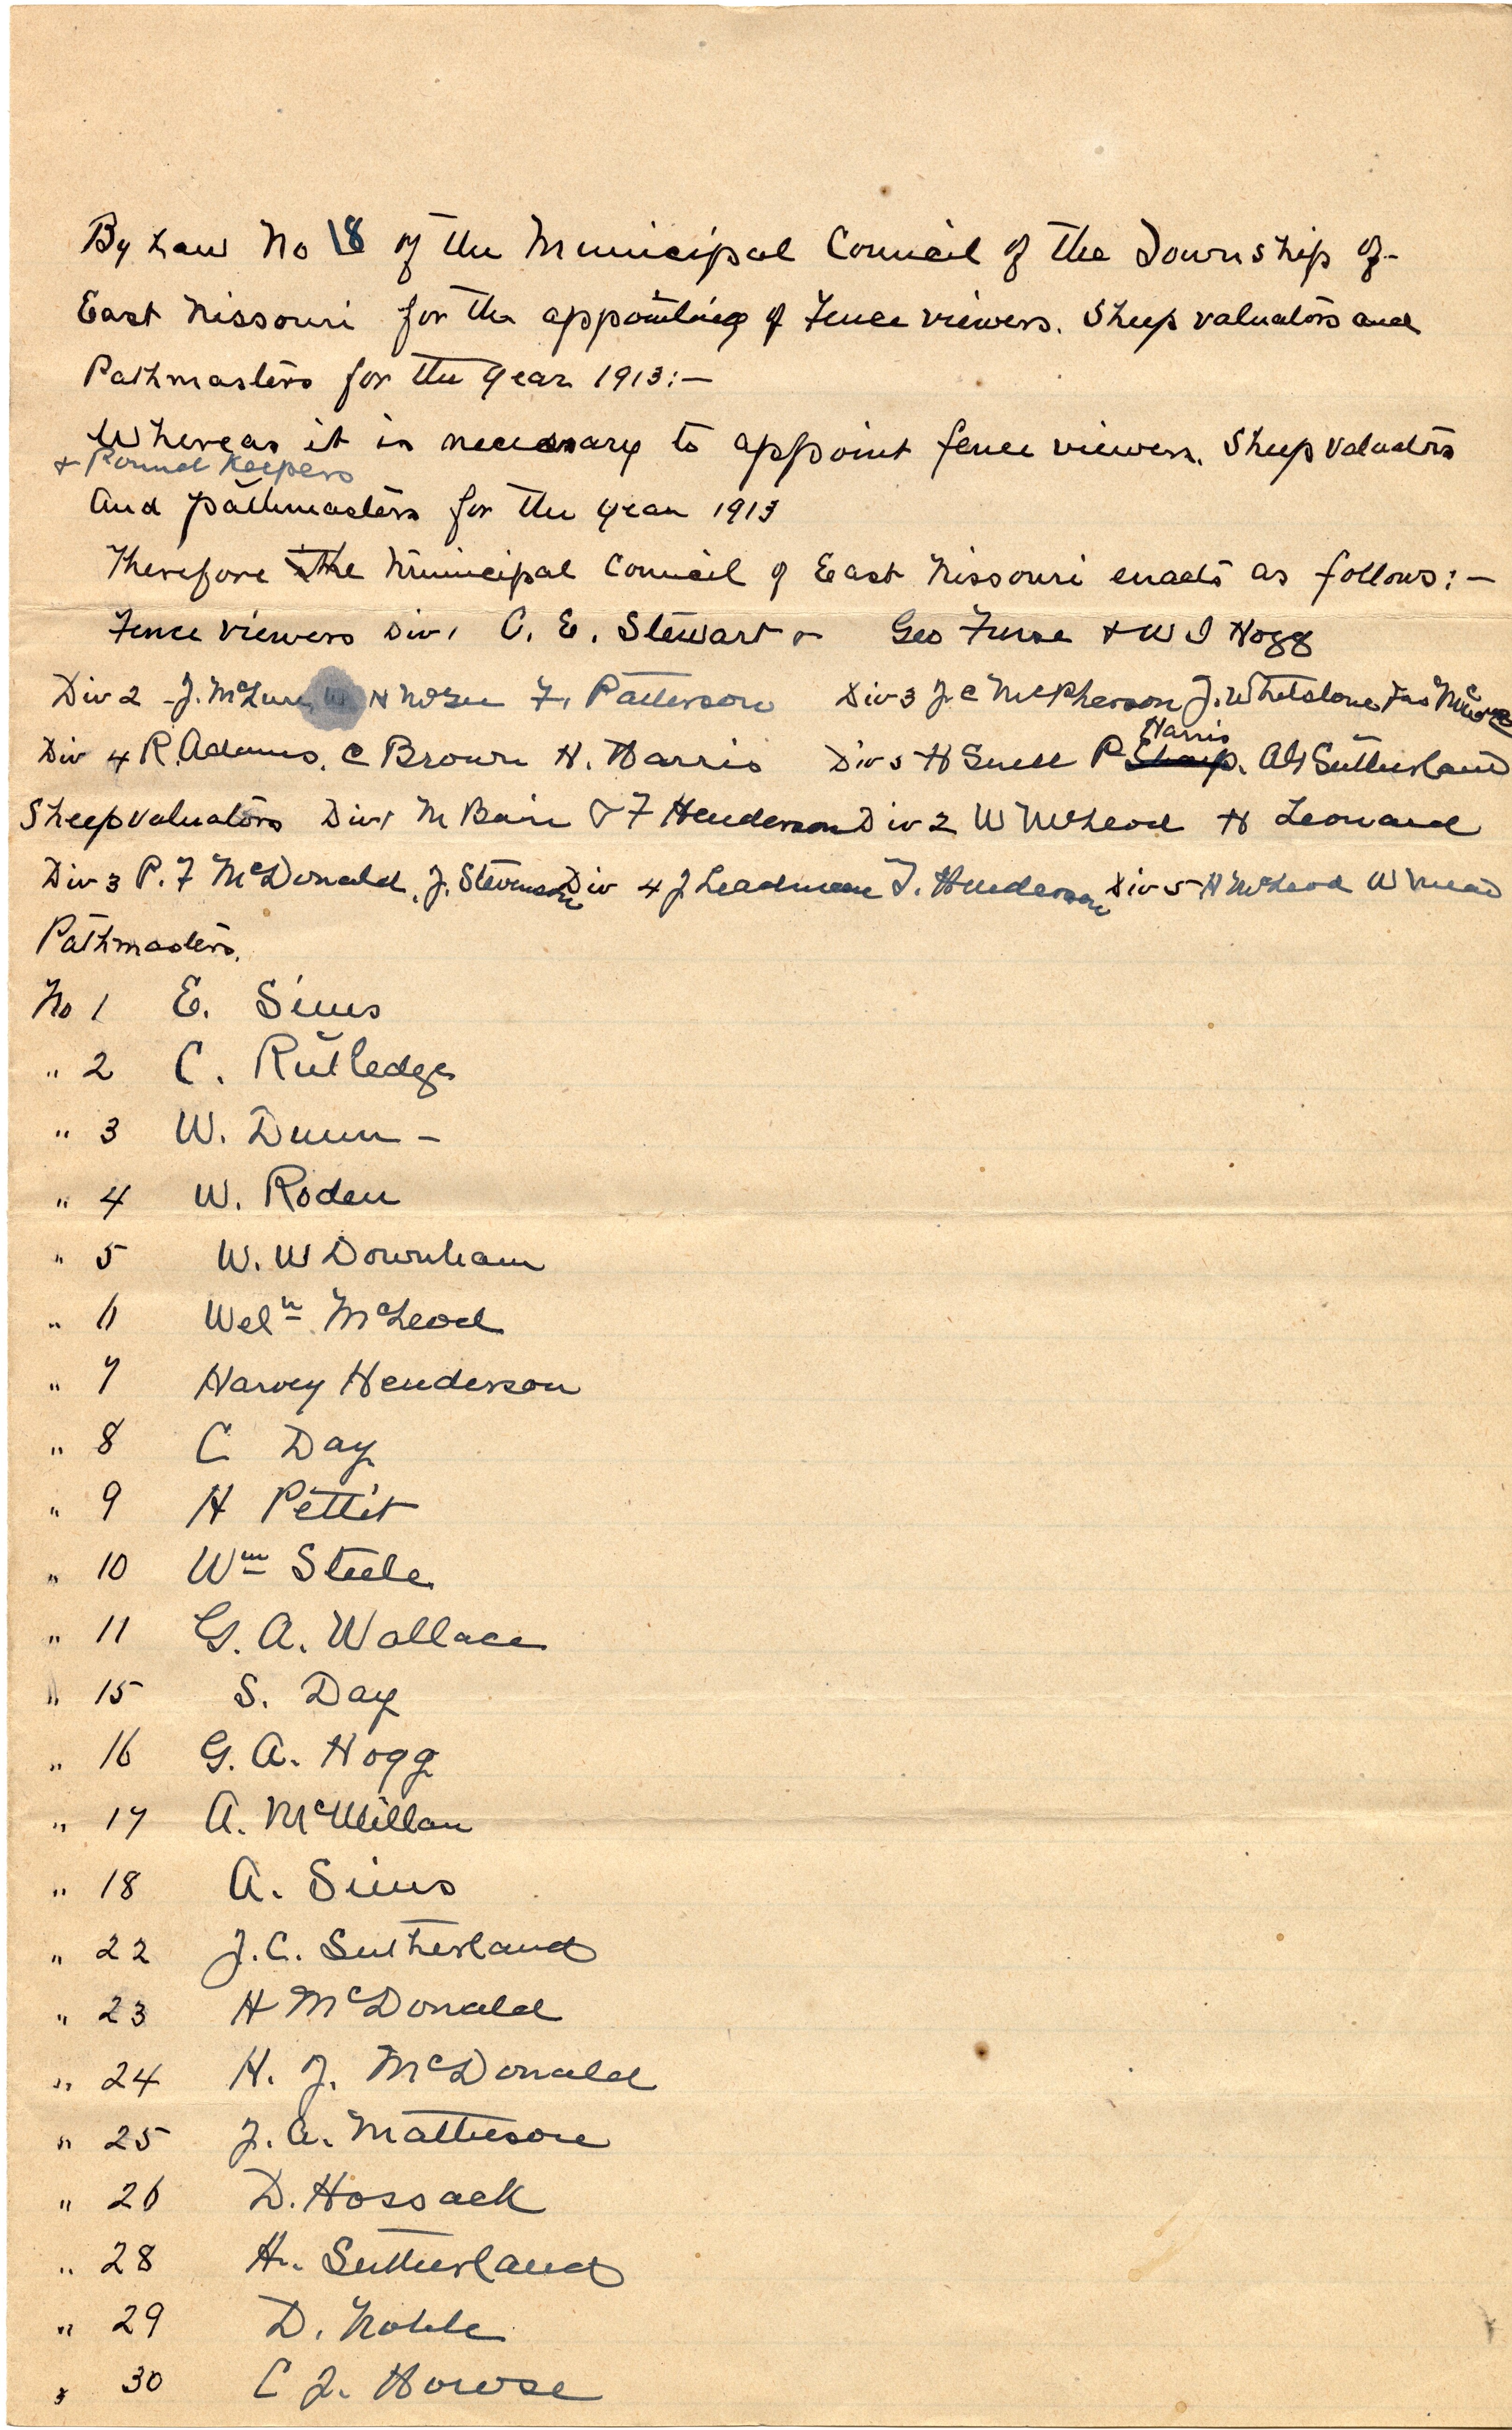 By Law No 18 of the Municipal Council of the Township of
East Nissouri for the appointing of Fence viewers. Sheep valuators and
Pathmasters for the year 1913:—
Whereas it is necessary to appoint fence viewers. Sheep valuators
+ Pound Keepers
and pathmasters for the year 1913
Therefore the Municipal Council of East Nissouri enacts as follows:—
Fence viewers Div 1 C. E. Stewart Geo Furse + W J Hogg
Div 2 - J. N McGee F. Patterson Div 3 J. C McPherson J. Whetstone Jas
Harris
Div 4 R. Adams. C Brown H. Harris Div 5 H Snell P Sharp. A G Sutherland
Sheep valuators Div 1 M Bain & F Henderson Div 2 W McLeod H Leonard
Div 3 P. F McDonald, J. Stevenson Div 4 J Leadman T. Henderson Div 5 H McLeod W Mead
Pathmasters.
No 1 E. Sims
" 2 C. Rutledge
" 3 W. Dunn -
" 4 W. Roden
" 5 W. W Downham
" 6 Welⁿ McLeod
" 7 Harvey Henderson
" 8 C Day
" 9 H Pettit
" 10 Wm Steele
" 11 G. A. Wallace
" 15 S. Day
" 16 G. A. Hogg
" 17 A. McMillan
" 18 A. Sims
" 22 J. C. Sutherland
" 23 H McDonald
" 24 H. J. McDonald
" 25 J. A. Matheson
" 26 D. Hossack
" 28 H. Sutherland
" 29 D. Noble
" 30 C J. Howse